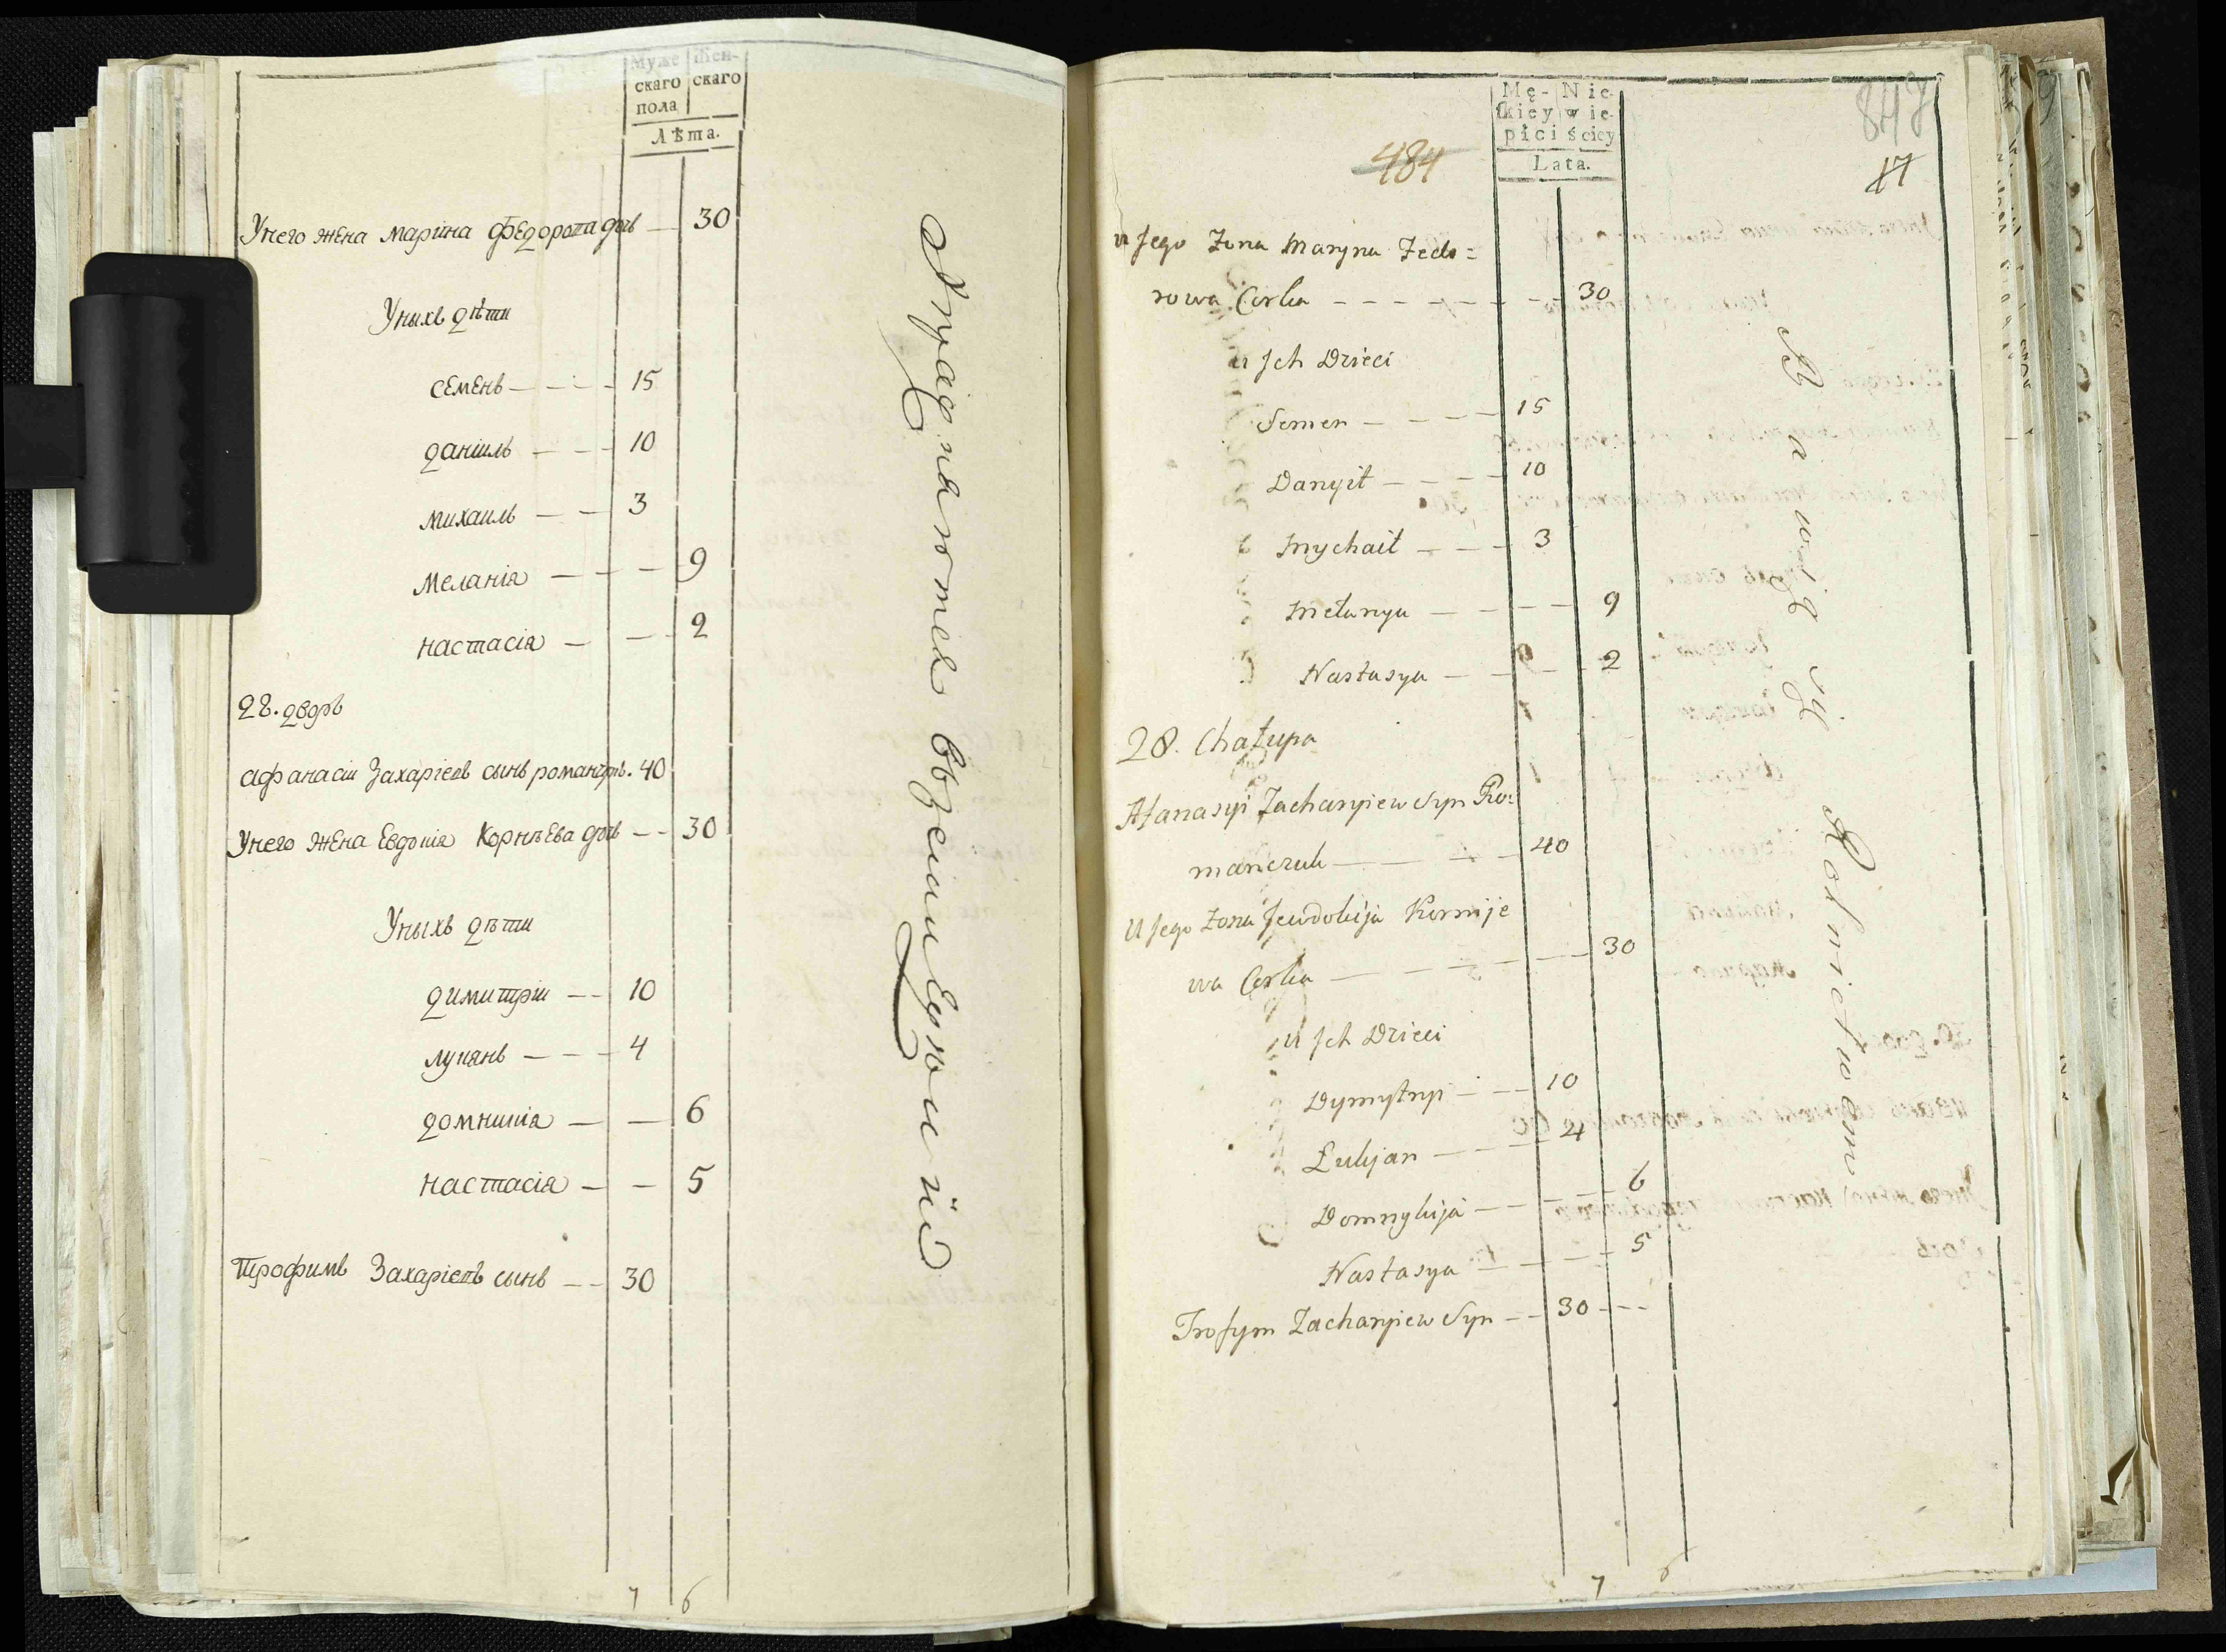 Муже
скаго
пола
Жен-
скаго
Лѣта.
Унего жена марина федорова дочь — 30
Унихъ дѣти
семенъ — — — 15
данiилъ — — 10
михаилъ — — 3
меланiя — — — 9
настасiя — — — 2
28. дворъ
афанасiи Захарiевъ сынъ романчукъ. 40
Унего жена Евдокiя Корнѣева дочь — — 30
Унихъ дѣти
димитрiи — — 10
лукянъ — — — 4
домникiя — — 6
настасiя — — 5
трофимъ Захарiевъ сынъ — — 30
7 6
Упражняются въ земледелiи
Mę-
skiey
płci
Nie-
wie-
ściey
Lata.
484
848
17
u Jego Zona Maryna Fedo=
rowa Corka — — — — — — — 30
u Jch Dzieci
Semen — — — — 15
Danyił — — — — 10
Mychaił — — — 3
Mełanya — — — — 9
Nastasya — — — 2
28. Chałupa
Afanasyi Zacharyiew Syn Ro=
manczuk — — — — 40
U Jego Zona Jewdokija Kornije
wa Corka — — — — — 30
u Jch Dzieci
Dymytryi — — — 10
Łukjan — — — 4
Domnykija — — — — 6
Nastasya — — — — 5
Trofym Zacharyiew Syn — — 30 — — —
7 6
Bawią się Rolnictwem